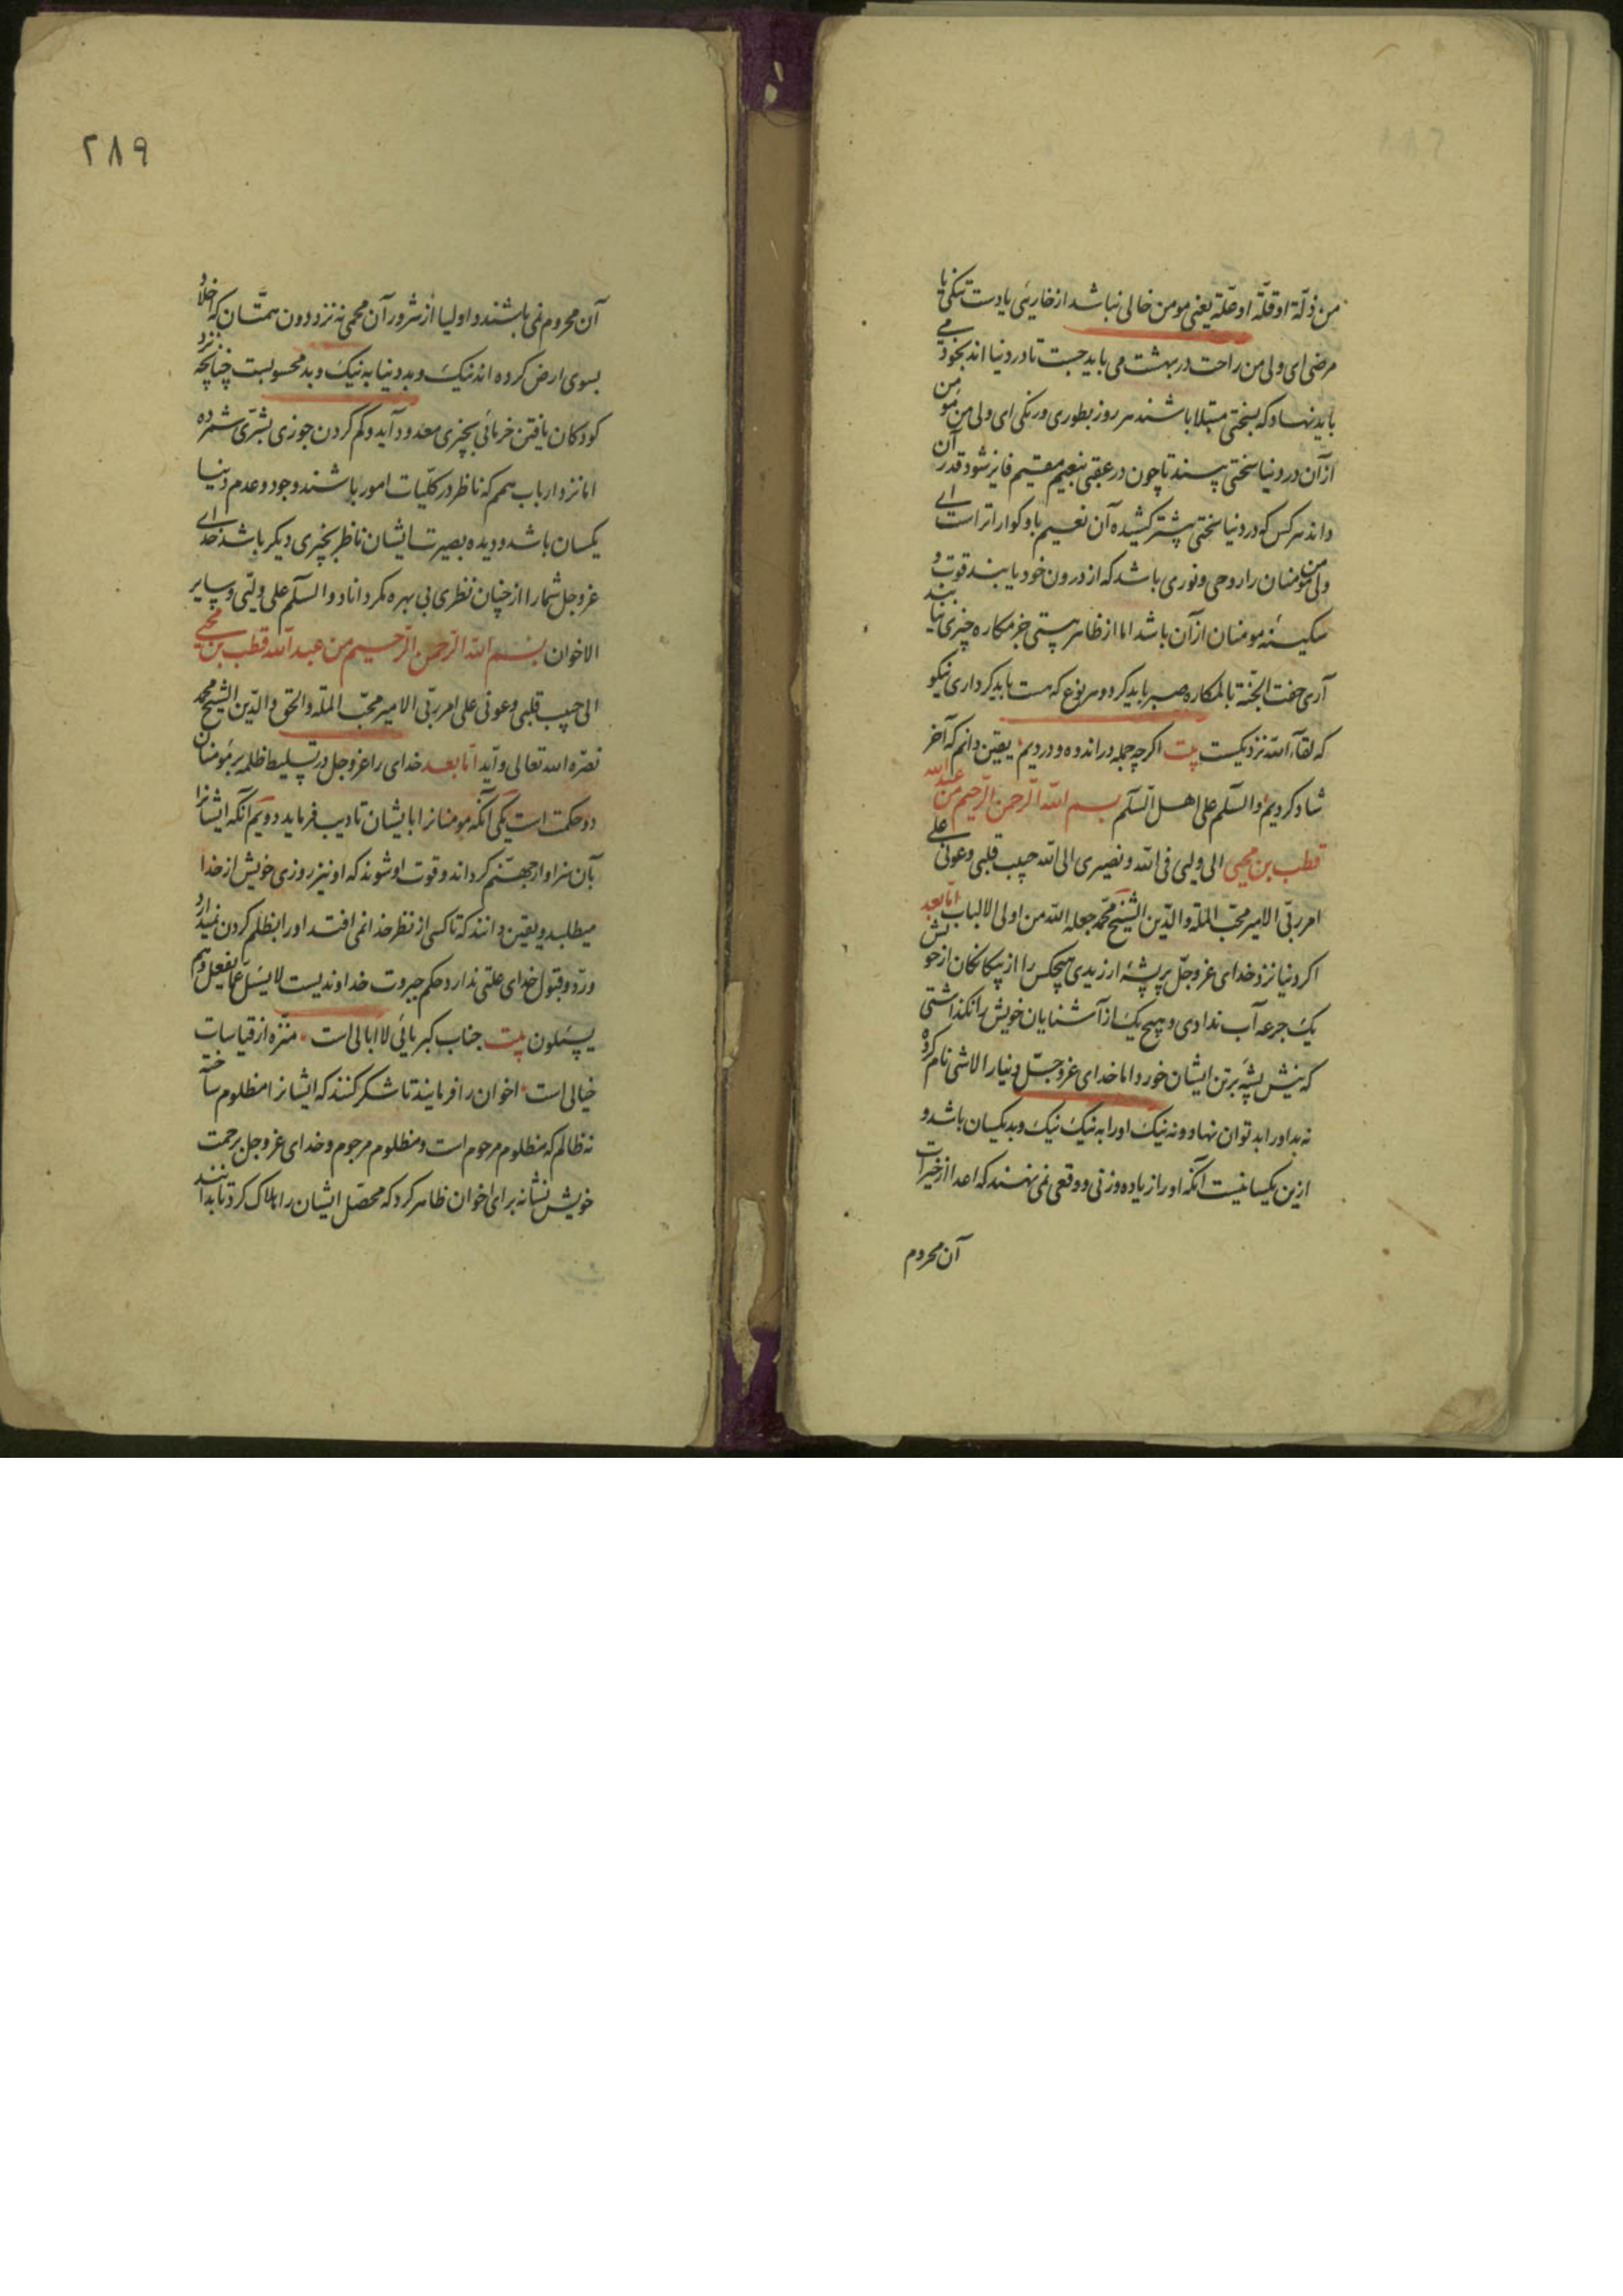 من ذلة او قلة او علة یعنی مومن خالی نباشد از خاریی یا دست تنکی یا
مرضی ای ولی من راحت در بهشت می باید جست تا در دنیا اند بخود می
باید نهاد که بسختی مبتلا باشند هر روز بطوری و رنکی ای ولی من مومن
از آن در دنیا سختی بیند تا چون در عقبی بنعیم مقیم فایز شود قدر آن
داند هر کس که در دنیا سختی بیشتر کشیده آن نعیم باو کواراتر است ای
ولی من مومنان را روحی و نوری باشد که از درون خود یابند قوت و
سکینه مومنان از آن باشد اما از ظاهر هستی جز مکاره چیزی نیابند
آری حفت الجنة بالمکاره صبر باید کرد و هر نوع که هست باید کرداری نیکو
که لقاء الله نزدیکست بیت اکر چه جمله در اندوه و دردیم یقین دانم که آخر
شاد کردیم والسلم علی اهل السلم بسم الله الرحمن الرحیم من عبدالله
قطب بن محیی الی ولیی فی الله و نصیری الی الله حبیب قلبی و عونی علی
امر ربی الامیر محب الملة والدین الشیخ محمد جعله الله من اولی الالباب اما بعد
اکر دنیا نزد خدای عز و جل پر پشه ارزیدی هیچکس را از بیکانکان از حوش
یک جرعه آب ندادی و هیچ یک از آشنایان خویش را نکذاشتی
که نیش پشه بر تن ایشان خورد اما خدای عز و جل دنیا را لاشی نام کرده
نه بد او را بد توان نهاد و نه نیک او را به نیک نیک و بد یکسان باشد و
ازین یکسانیست آنکه او را زیاده وزنی و وقعی نمی نهند که اعدا از خیرات
آن محروم
۲۸۹
آن محروم نمی باشند و اولیا از شرور آن محمی نه نزد دون همتان که اخلاد
بسوی ارض کرده اند نیک و بد دنیا به نیک و بد محسوبست چنانچه نزد
کودکان یافتن خرمائی بچیزی معدود آید و کم کردن جوزی بشتری شمرده
اما نزد ارباب همم که ناظر در کلیات امور باشند وجود و عدم دنیا
یکسان باشد و دیده بصیرت ایشان ناظر بچیزی دیکر باشد خدای
عز و جل شما را از چنان نظری بی بهره مکرداناد والسلم علی ولیی و سایر
الاخوان بسم الله الرحمن الرحیم من عبدالله قطب بن محیی
الی حبیب قلبی و عونی علی امر ربی الامیر محب الملة والحق والدین الشیخ محمد
نصره الله تعالی و آید اما بعد خدای را عز و جل در تسلیط ظلمه بر مومنان
دو حکمت است یکی آنکه مومنانرا بایشان تادیب فرماید دویم آنکه ایشانرا
بآن سزاوار جهنم کرداند و قوت او شوند که او نیز روزی خویش از خدا
میطلبد و یقین دانند که تا کسی از نظر خدا نمی افتد او را بظلم کردن نمیدارد
و رد و قبول خدای علتی ندارد حکم جبروت خداوندیست لا یسئل عما یفعل و هم
یسئلون بیت جناب کبریائی لا ابالی است منزه از قیاسات
خیالی است اخوان را فرمایند تا شکر کنند که ایشانرا مظلوم ساخته
نه ظالم که مظلوم مرحوم است و مظلوم مرجوم و خدای عز و جل برحمت
خویش نشانه برای اخوان ظاهر کرد که محصل ایشان را هلاک کرد تا بدانند